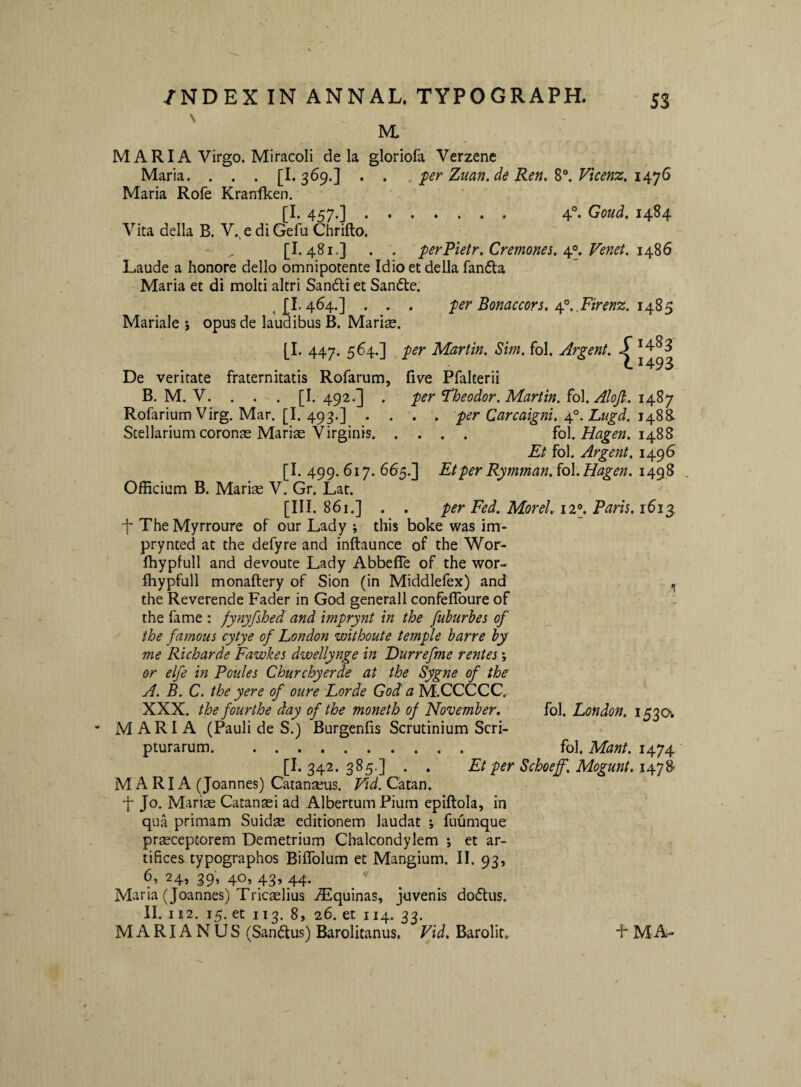 INDEX IN ANNAL. TYPOGRAPH. 53
M.
MARIA Virgo. Miracoli de la glorioſa Verzene
Maria. . . . [I. 369.] . . per Zuan. de Ren. 8°. Vicenz. 1476
Maria Roſe Kranſken.
[I. 457.] . . . . . . . 4°. Goud. 1484
Vita della B. V. e di Geſu Chriſto.
[I. 481.] . . per Pietr. Cremones. 4°. Venet. 1486
Laude a honore dello omnipotente Idio et della ſanƈta
Maria et di molti altri Sanƈti et Sanƈte.
[I. 464.] . . . per Bonaccors. 4°. Firenz. 1485
Mariale ; opus de laudibus B. Mariæ.
[I. 447. 564.] per Martin. Sim. fol. Argent. { 1483
1493
De veritate fraternitatis Roſarum, ſive Pſalterii
B. M. V. . . . [I. 492.] . per Theodor. Martin. fol. Aloſt. 1487
Roſarium Virg. Mar. [I. 493.] . . . . per Carcaigni. 4°. Lugd. 1488
Stellarium coronæ Mariæ Virginis. . . . . fol. Hagen. 1488
Et fol. Argent. 1496
[I. 499. 617. 665.] Et per Rymman. fol. Hagen. 1498
Officium B. Mariæ V. Gr. Lat.
[III. 861.] . . per Fed. Morel. 12°. Paris. 1613
† The Myrroure of our Lady ; this boke was im-
prynted at the deſyre and inſtaunce of the Wor-
ſhypfull and devoute Lady Abbeſſe of the wor-
ſhypfull monaſtery of Sion (in Middleſex) and
the Reverende Fader in God generall confeſſoure of
the ſame : fynyſshed and imprynt in the ſuburbes of
the famous cytye of London withoute temple barre by
me Richarde Fawkes dwellynge in Durreſme rentes ;
or elſe in Poules Churchyerde at the Sygne of the
A. B. C. the yere of oure Lorde God a M.CCCCC.
XXX. the fourthe day of the moneth of November. fol. London. 1530.
MARIA (Pauli de S.) Burgenſis Scrutinium Scri-
pturarum. . . . . . . . . . . fol. Mant. 1474
[I. 342. 385.] . . Et per Schoeff. Mogunt. 1478
MARIA (Joannes) Catanæus. Vid. Catan.
† Jo. Mariæ Catanæi ad Albertum Pium epiſtola, in
quâ primam Suidæ editionem laudat ; ſuúmque
præceptorem Demetrium Chalcondylem ; et ar-
tifices typographos Biſſolum et Mangium. II. 93,
6, 24, 39, 40, 43, 44.
Maria (Joannes) Tricælius Æquinas, juvenis doƈtus.
II. 112. 15. et 113. 8, 26. et 114. 33.
MARIANUS (Sanƈtus) Barolitanus. Vid. Barolit.
† MA-